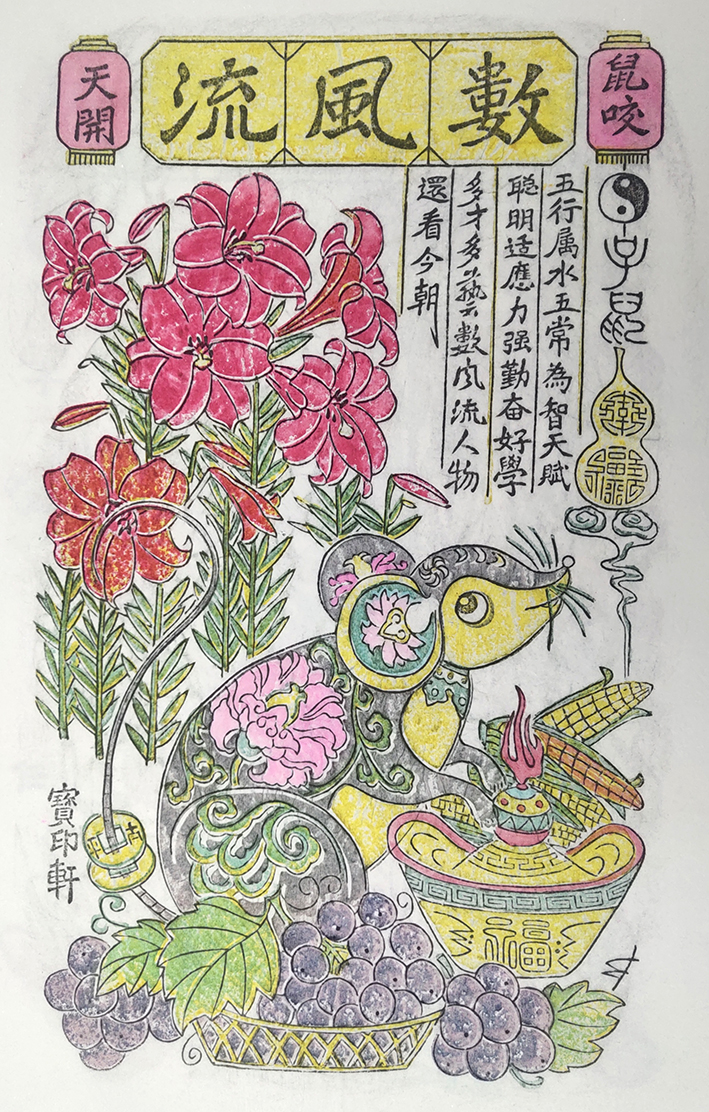 鼠咬
天開
數風流
子鼠
五行属水五常為智天賦
聪明适應力强勤奋好學
多才多藝數风流人物
還看今朝
福
寶印軒
福